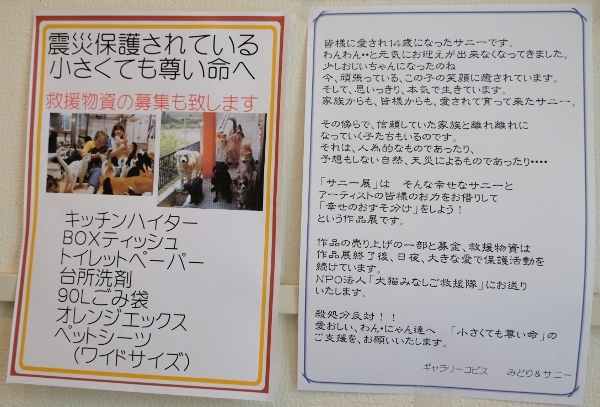 震災保護されている
小さくても尊い命へ
救援物資の募集も致します
キッチンハイター
BOXティッシュ
トイレットペーパー
台所洗剤
90Lごみ袋
オレンジエックス
ペットシーツ
(ワイドサイズ)
皆様に愛され14歳になったサニーです。
わんわん・・と元気にお迎えが出来なくなってきました。
少しおじいちゃんになったのね
今、頑張っている、この子の笑顔に癒されています。
そして、思いっきり、本気で生きています。
家族からも、皆様からも、愛されて育って来たサニー。
その傍らで、信頼していた家族と離れ離れに
なっていく子たちもいるのです。
それは、人為的なものであったり、
予想もしない自然、天災によるものであったり・・・・
「サニー展」は そんな幸せなサニーと
アーティストの皆様のお力をお借りして
「幸せのおすそ分け」をしよう!
という作品展です。
作品の売り上げの一部と募金、救援物資は
作品展終了後、日夜、大きな愛で保護活動を
続けています。
NPO法人「犬猫みなしご救援隊」にお送り
いたします。
殺処分反対!!
愛おしい、わん・にゃん達へ 「小さくても尊い命」の
ご支援を、お願いいたします。
ギャラリーコピス みどり&サニー